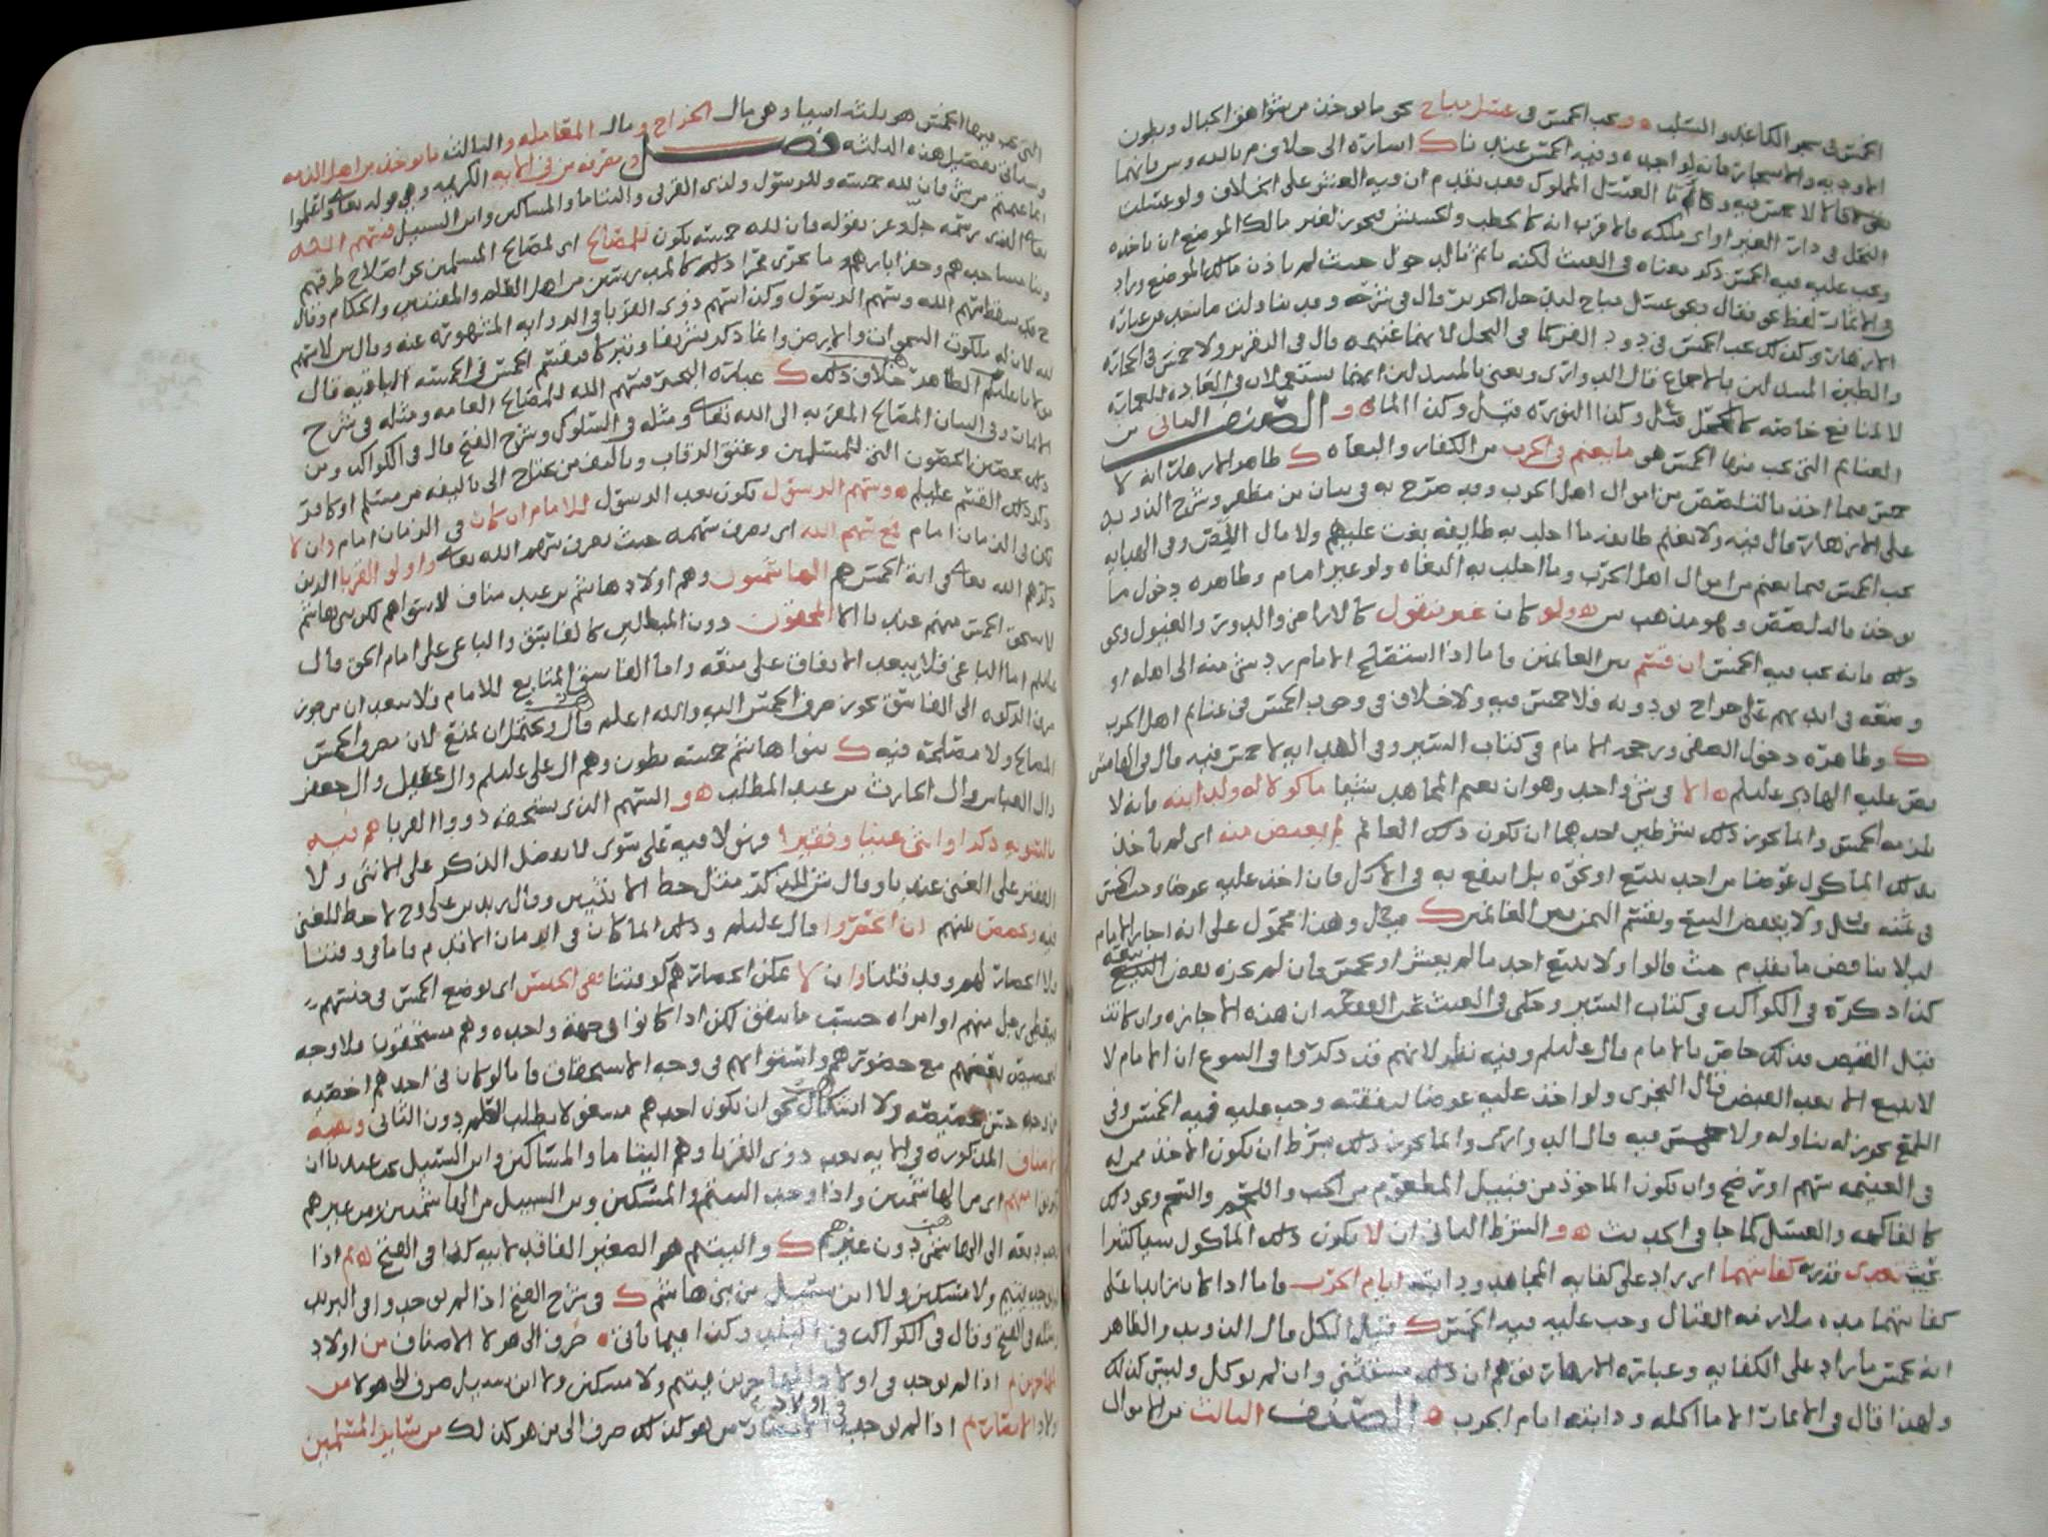 الخمس في سحر الكاغد والسلب ه و يجب الخمس في عسل مباح نحو ما يوخذ من شواهق الجبال وبطون
الاوديه والاشجار فانه اجده وفيه الخمس عندنا ك اشارة الى خلاف م بالله
قالا لا خمس فيه وقال العسل المملوك فقد تقدم ان فيه العشر على الخلاف ولو عسلت
النحل في دار الغير او في ملكه فالاقرب انه كالحطب والحشيش فيجوز لغير مالك الموضع ان ياخذه
ويجب عليه فيه الخمس ذكر معناه في الغيث لكنه ياثم بالدخول حيث لم ياذن مالك الموضع وزاد
في الاثمار لفظ نحو فقال ونحو عسل مباح ليدخل الحرير قال في شرحه وقد تناولت ما نحن عبارة
الازهار وكذلك يجب الخمس في دود القز كما في النحل لانهما غنيمه قال في التقرير ولا خمس في الحجارة
والطين المسدلين بالاجماع قال الدواري ويعني بالمسدلين انهما يستعملان في العاده للعمارة
لا لمنافع خاصه كالكحل قيل وكذا النوره قيل وكذا الماء ه و الصنف الثاني من
الغنايم التي يجب فيها الخمس هو ما يغنم في الحرب من الكفار والبغاه ك ظاهر الازهار انه لا
خمس فيما اخذ بالتلصص من اموال اهل الحرب وقد صرح به في بيان بن مظفر وشرح الذويد
على الازهار قال فيه ولا يغنم طايفه ما اجلب به طايفه بغت عليهم ولا مال اللص وفي الهدايه
يجب الخمس فيما يغنم من اموال اهل الحرب وما اجلب به البغاه ولو غير امام وظاهره دخول ما
يوخذ بالتلصص وهو مذهب س ه ولو كان غير منقول كالاراضي والدور والعبول ونحو
ذلك فانه يجب فيه الخمس ان قسم بين الغانمين واما اذا استفتح الامام ردشي منه الى اهله او
وضعه في ايديهم على خراج يودونه فلا خمس فيه ولا خلاف في وجوب الخمس في غنايم اهل الحرب
ك وظاهره دخول الصفي ورجحه الامام في كتاب السير وفي الهدايه لا خمس فيه قال في الهامش
نص عليه الهادي عليلم ه الا في شي واحد وهو ان يغنم المجاهد شيئا ماكولا له ولدابته فانه لا
يلزمه الخمس وانما يجوز ذلك بشرطين احدهما ان يكون ذلك الغانم لم يعتض منه اي لم ياخذ
بذلك الماكول عوضا من احد ببيع او نحوه بل انتفع به في الاكل فان اخذ عليه عوضا وجب الخمس
في ثمنه قيل ولا ينقض البيع ويقسم الثمن بين الغانمين ك قيل وهذا محمول على انه اجاز الامام
ليلا يناقض ما تقدم حيث قالوا ولا يبيع احد مالم يعشر او يخمس فان لم يجزه نقض البيع
كذا ذكره في الكواكب في كتاب السير وحكى في الغيث عن الفقيه ان هذه الاجازه وان كانت
قبل القبض فذلك خاص بالامام قال عليلم وفيه نظر لانهم قد ذكروا في البيوع ان الامام لا
لا يبيع الا بعد القبض قال النجري ولو اخذ عليه عوضا لنفقته وجب عليه فيه الخمس وفي
اللمع يجوز له تناوله ولا خمس فيه قال الدواري وانما يجوز ذلك بشرط ان يكون الاخذ ممن له
في الغنيمه سهم او رضخ وان يكون الماخوذ من قبيل المطعوم من الحب واللحم والشحم ونحو ذلك
كالفاكهه والعسل كما جا في الحديث ه و الشرط الثاني ان لا يكون ذلك الماكول شيا كثيرا
بحيث يتعدى قدره كفايتهما اي يزاد على كفايه المجاهد ودابته ايام الحرب فاما اذا كان زايدا على
كفايتهما مده ملازمه القتال وجب عليه فيه الخمس ك قبل الكل قال الذويد والظاهر
انه يخمس ما زاد على الكفايه وعباره الازهار توهم ان ذلك مستثنى وان لم يوكل وليس كذلك
ولهذا قال في الاثمار الا ما اكله ودابته ايام الحرب ه الصنف الثالث من الاموال
التي يجب فيها الخمس هو ثلثه اشيا وهي مال الخراج و مال المعامله و الثالث ما يوخذ من اهل الذمه
وسياتي تفصيل هذه الثلثه فصل و مصرفه من في الايه الكريمه وهي قوله تعالى واعلموا
انما غنمتم من شي فان لله خمسه وللرسول ولذي القربى واليتاما والمساكين وابن السبيل فسهم الله
تعالى الذي رسمه جل وعز بقوله فان لله خمسه يكون للمصالح اي لمصالح المسلمين نحو اصلاح طرقهم
وبنا مساجدهم وحفر ابارهم وما يجري مجرا ذلك كالمدرسين من اهل العلم والمفتيين والحكام وقال
ح قد سقط سهم الله وسهم الرسول وكذا سهم ذوي القربا في الروايه المشهوره عنه وقال س لا سهم
لله لان له ملكوت السموات والارض وانما ذكر تشريفا وتبركا فيقسم الخمس في الخمسه الباقيه قال
مولانا عليلم الظاهر خلاف ذلك ك عباره البحر فسهم الله للمصالح العامه ومثله في شرح
الاثمار وفي البيان المصالح المقربه الى الله تعالى ومثله في السلوك وشرح الفتح قال في الكواكب ومن
ذلك تحصين الحصون التي للمسلمين وعتق الرقاب وتاليف من يحتاج الى تاليفه من مسلم او كافر
ذكر ذلك القسم عليلم ه وسهم الرسول يكون بعد الرسول للامام ان كان في الزمان امام وان لا
يكن في الزمان امام فمع سهم الله اي يصرف سهمه حيث يصرف سهم الله تعالى واولو القربا الذين
ذكرهم الله تعالى في اية الخمس هم الهاشميون وهم اولاد هاشم بن عبد مناف لا سواهم لكن بني هاشم
لا يستحق الخمس منهم عندنا الا المحقون دون المبطلين كالفاسق والباغي على امام الحق قال
عليلم اما الباغي فلا يبعد الاتفاق على منعه واما الفاسق المتابع للامام فلا يبعد ان من جوز
صرف الزكوه الى الفاسق يجوز صرف الخمس اليه والله اعلم قال ويحتمل ان يمنع لان مصرف الخمس
المصالح ولا مصلحة فيه ك بنوا هاشم خمسه بطون وهم ال علي عليلم وال عقيل وال جعفر
وال العباس وال الحارث بن عبد المطلب ه و السهم الذي يستحقه ذووا القربا هم فيه
بالسويه ذكرا وانثى غنيا وفقيرا فهولا فيه على سوى لا يفضل الذكر على الانثى ولا
الفقير على الغني عندنا وقال ش للذكر مثل حظ الانثيين وقال زيد بن علي وح لا حظ للغني
فيه ويحصص بينهم ان انحصروا قال عليلم وذلك انما كان في الزمان الاقدم فاما في وقتنا
فلا انحصار لهم وقد قلنا وان لا يمكن انحصارهم كوقتنا ففي الجنس اي يوضع الخمس في جنسهم
فيعطى رجل منهم او امراه حسب ما يتفق لكن اذا كانوا في جهة واحده وهم مستحقون فلا وجه
لتخصيص بعضهم مع حضورهم واستوائهم في وجه الاستحقاق فاما لو كان في احدهم اخصيه
من وجه حسن تخصيصه ولا اشكال نحو ان يكون احدهم مشغولا بطلب العلم دون الثاني وبقيه
الاصناف المذكوره في الايه بعد ذوي القربا وهم اليتاما والمساكين وابن السبيل يجب عندنا ان
تكون منهم اي من الهاشمين واذا وجد اليتيم والمسكين وبن السبيل من الهاشمين ومن غيرهم
وجب دفعه الى الهاشمي دون غيرهم ك واليتيم هو الصغير الفاقد لابيه كذا في الفتح ه ثم اذا
لم يوجد يتيم ولا مسكين ولا ابن سبيل من بني هاشم ك في شرح الفتح اذا لم يوجدوا في البريد
ومثله في الفتح وقال في الكواكب في البلد وكذا فيما ياتي ه صرف الى هولا الاصناف من اولاد
المهاجرين ثم اذا لم يوجد في اولاد المهاجرين يتيم ولا مسكين ولا ابن سبيل صرف الى هولا من
اولاد الانصار ثم اذا لم يوجد في اولاد الانصار من هو كذلك صرف الى من هو كذلك من ساير المسلمين